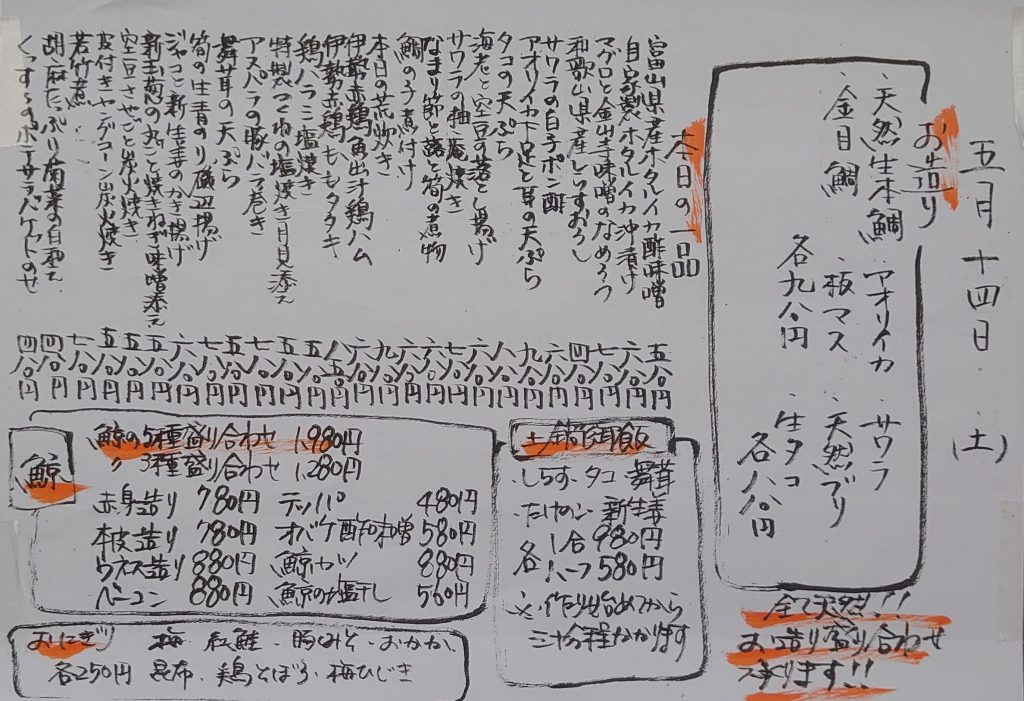 五月十四日(土)
お造り
・天然生本鯛 ・アオリイカ ・サワラ
・金目鯛 ・板マス ・天然ブリ
・生タコ
各九八〇円 各八八〇円
全て天然!!
お造り盛り合わせ
あります!!
本日の一品
富山県産ホタルイカ酢味噌 五八〇円
自家製ホタルイカ沖漬け 六八〇円
マグロと金山寺味噌のなめろう 七八〇円
和歌山県産しらすおろし 四八〇円
サワラの白子ポン酢 六八〇円
アオリイカ下足と耳の天ぷら 九八〇円
タコの天ぷら 八八〇円
海老と空豆の落とし揚げ 六八〇円
サワラの柚庵焼き 七八〇円
なまり節と蕗と筍の煮物 六八〇円
鯛のうま煮付け 六八〇円
本日の荒炊き 九八〇円
伊勢赤鶏魚出汁鶏ハム 六八〇円
伊勢赤鶏ももタタキ 八五〇円
鶏ハラミ塩焼き 五八〇円
特製つくねの塩焼き月見添え 五八〇円
アスパラの豚バラ巻き 七八〇円
舞茸の天ぷら 五八〇円
筍の生青のり磯辺揚げ 七八〇円
ジャコと新生姜のかき揚げ 六八〇円
新玉葱の丸ごと焼きねぎ味噌添え 五八〇円
空豆さやごと炭火焼き 五八〇円
皮付きヤングコーン炭火焼き 八八〇円
若竹煮 七八〇円
胡麻たっぷり菊菜の白和え 四八〇円
くっするのポテサラバケットのせ 四八〇円
鯨
鯨の5種盛り合わせ 1,980円
〃 3種盛り合わせ 1,280円
赤身造り 780円 テッパ 480円
本皮造り 780円 オバケ酢味噌 580円
ウネス造り 880円 鯨カツ 880円
ベーコン 880円 鯨のカ塩干し 560円
土鍋御飯
・しらす・タコ・舞茸
・たけのこ・新生姜
各 1合 980円
ハーフ 580円
※作り始めてから
三十分程かかります
おにぎり 梅・紅鮭・豚みそ・おかか・
各250円 昆布・鶏そぼろ・梅ひじき